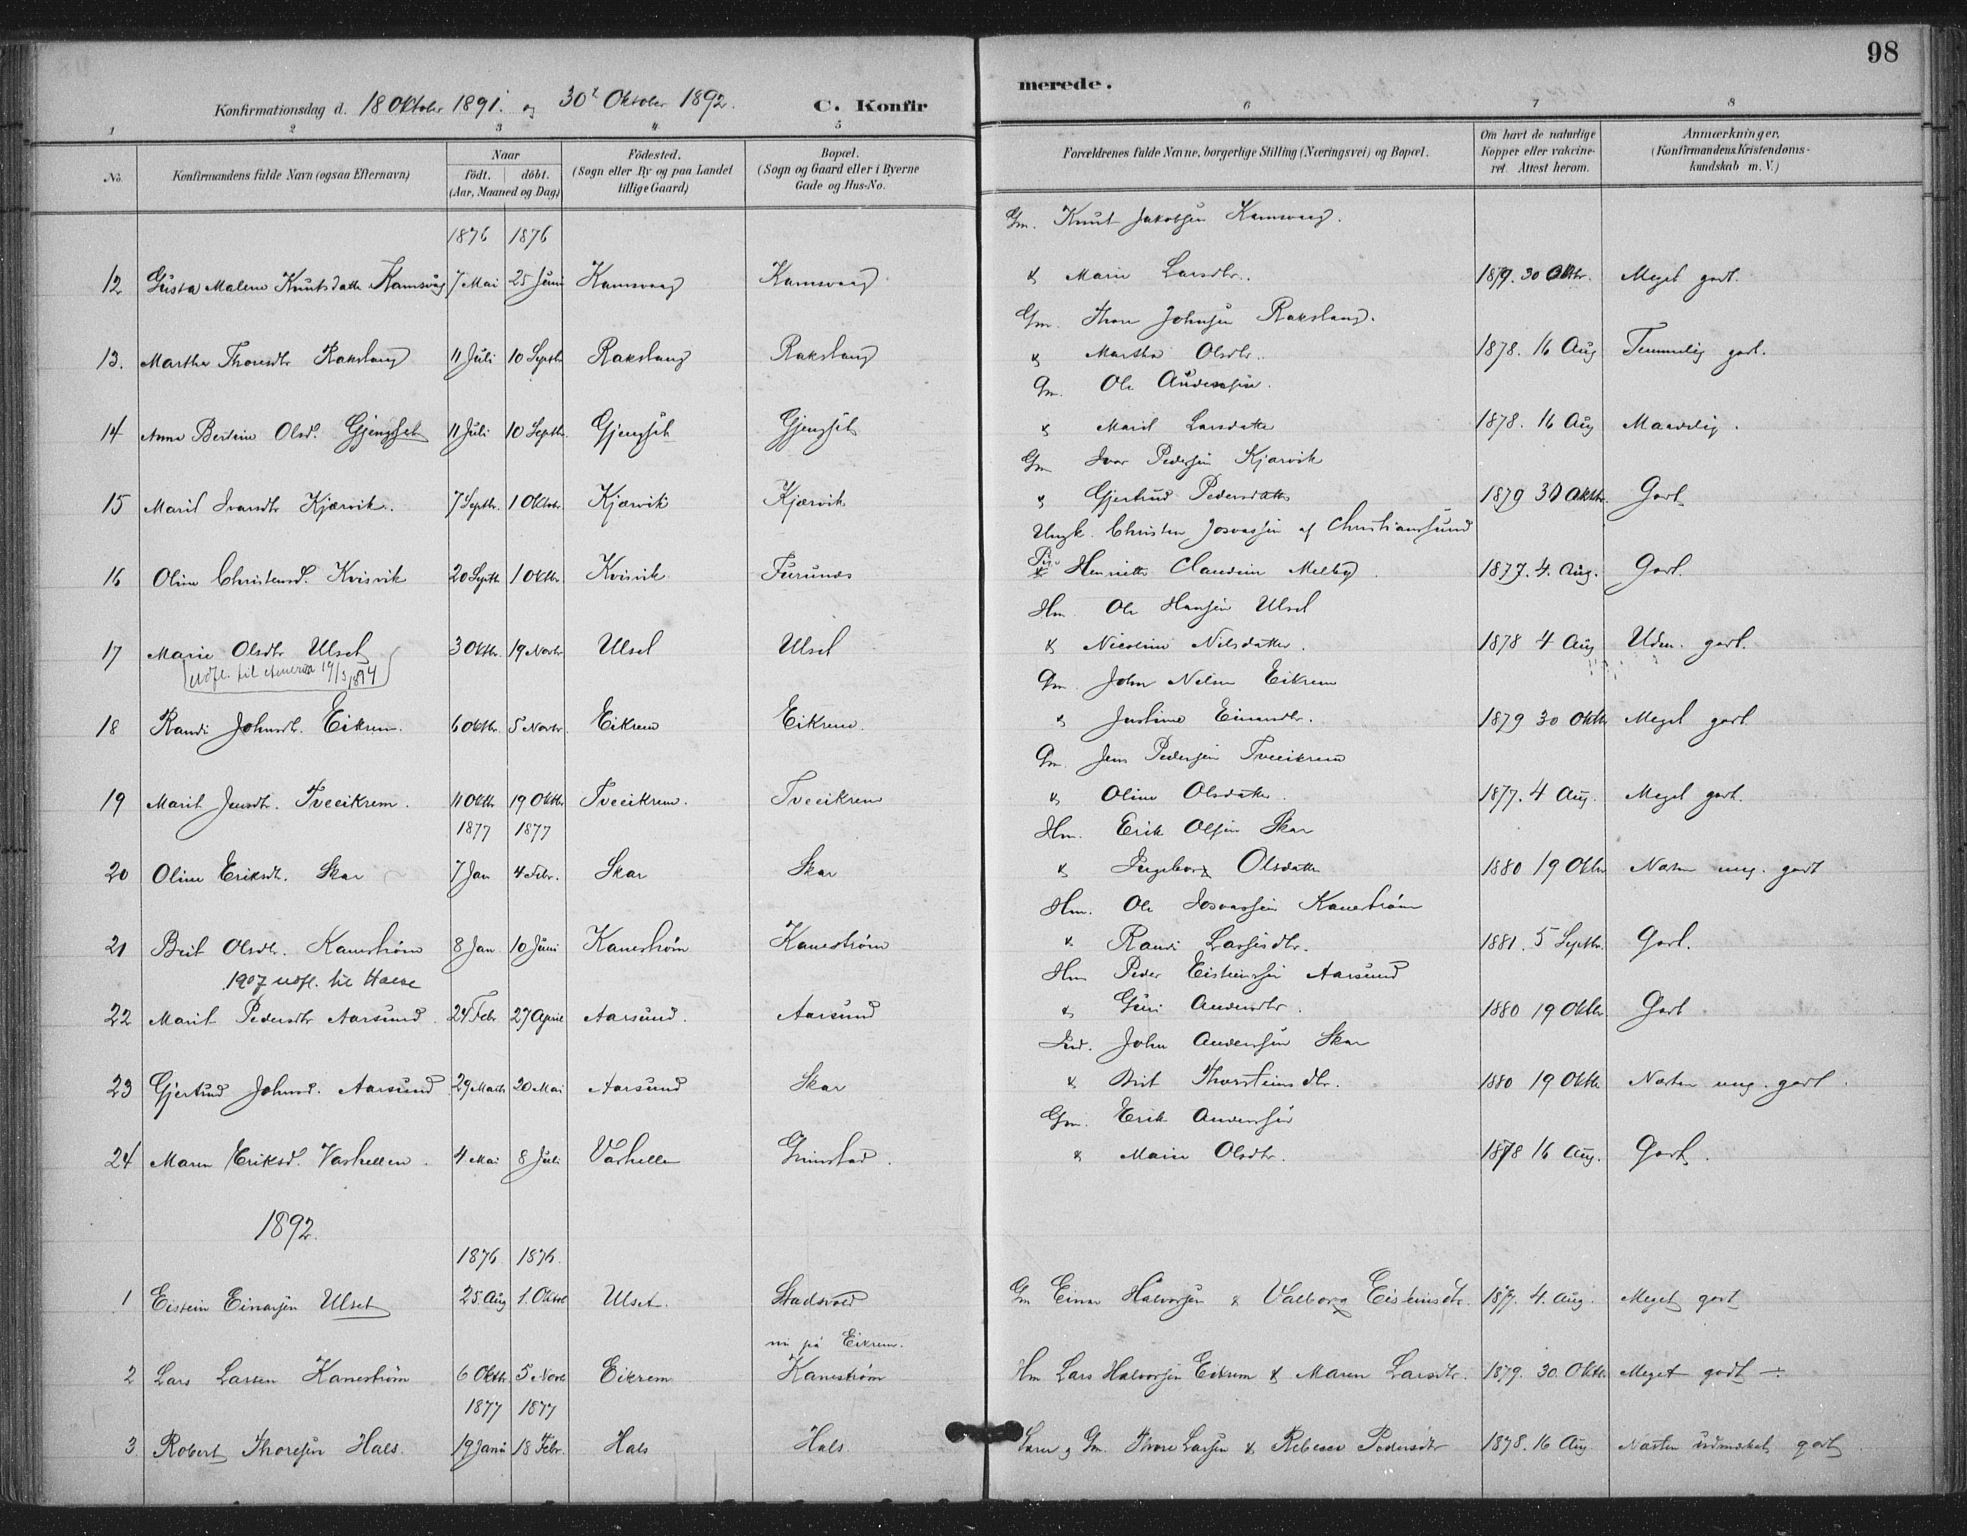 98
Konfirmationsdag d. 18 Oktober 1891. og 30te Oktober 1892. C. Konfir merede.
1 2 3 4 5 6 7 8
No. Konfirmandens fulde Navn (ogsaa Efternavn) Naar födt. döbt. (Aar, Maaned og Dag) Födested. (Sogn eller By og paa Landet tillige Gaard) Bopæl. (Sogn og Gaard eller i Byerne Gade og Hus-No. Forældrenes fulde Navne, borgerlige Stilling (Næringsvei) og Bopæl. Om havt de naturlige Kopper eller vakcineret. Attest herom. Anmærkninger. (Konfirmandens Kristendomskundskab m. V.)
Gm. Knut Jakobsen Kamsvaag.
1876 1876
12 Gusta Maline Knutsdatter Kamsvåg 7 Mai 25 Juni Kamsvaag Kamsvaag & Marie Larsdtr. 1879. 30 Oktbr. Meget godt.
Gm. Thore Johnsen Rakvaag.
13. Martha Thoresdtr Rakvaag 11 Juli 10 Septbr Rakvaag Rakvaag & Martha Olsdtr. 1878. 16 Aug Temmelig godt.
Gm. Ole Andersen.
14 Anna Bertine Olsd. Gjengset 11 Juli 10 Septbr. Gjengset Gjengset & Marit Larsdatter 1878. 16 Aug Maadelig.
Gm Ivar Pedersen Kjørvik
15 Marit Ivarsdtr Kjærvik. 7 Septbr. 1 Oktober Kjærvik Kjærvik & Gjertrud Pedersdatter 1879 30 Oktbr. Godt
Ungk. Christen Josvassen af Christianssund
16 Oline Christensd. Kvisvik 20 Septbr 1 Oktbr. Kvisvik Furunes Pi. & Henriette Claudine Melby. 1877. 4. Aug. Godt.
Hm. Ole Hansen Ulset
17 Marie Olsdtr Ulset 3 Oktbr. 19 Novbr Ulset Ulset & Nicoline Nilsdatter. 1878 4 Aug Udm. godt.
udfl. til Amerika 19/3 1894
Gm. John Nilsen Eikrem
18 Randi Johnsdtr. Eikrem. 6 Oktbr. 5 Novbr. Eikrem Eikrem. & Justine Einarsdtr. 1879 30 Oktbr Meget godt.
Gm. Jens Pedersen Tveeikrem
19 Marit Jensdtr. Tveeikrem. 11 Oktbr 19 Oktbr Tveeikrem. Tveeikrem & Oline Olsdatter. 1877. 4 Aug. Meget godt.
1877 1877
Hm. Erik Olsen Skar
20 Oline Eriksdtr. Skar 7 Jan 4 Febr. Skar Skar & Ingeborg Olsdatter 1880 19 Oktbr Næsten meg. godt
Hm. Ole Josvassen Kanestrøm
21 Brit Olsdtr. Kanestrøm 8 Jan. 10 Juni Kanestrøm Kanestrøm & Randi Larsisdtr. 1881. 5 Septbr. Godt.
1907 udfl. til Halse
Hm Peder Eisteinsen Aarsund
22 Marit Pedersdtr Aarsund. 24 Febr. 27 April Aarsund. Aarsund & Guri Andersdtr. 1880 19 Oktbr Godt.
Ind. John Andersen Skar
23 Gjertrud Johnsd. Aarsund 29 Marts 20 Mai Aarsund Skar & Brit Thorsteinsdtr. 1880 19 Oktbr Næsten meg. godt.
Gm. Erik Andersen
24 Maren Eriksd. Vashellen. 4 Mai 8 Juli Vashellen Grimstad. & Marie Olsdtr. 1878 16 Aug. Godt.
1892.
1876 1876.
1 Eistein Einarsen Ulset 25 Aug 1. Oktob Ulset. Stadsvold Gm Einar Halvorsen & Valborg Eisteinsdtr. 1877. 4. Aug. Meget godt
nu på Eikrem.
2 Lars Larsen Kanestrøm 6 Oktbr 5 Novb Eikrem Kanestrøm Hm Lars Halvorsen Eikrem & Maren Larsdtr. 1879. 30. Oktbr Meget godt ÷
1877 1877
3. Robert Thoresen Hals. 19 Janu 18 Febr. Hals Hals Lærer og Gm. Thore Larsen & Rebecca Pedersdtr 1878. 16 Aug Næsten udmerket godt